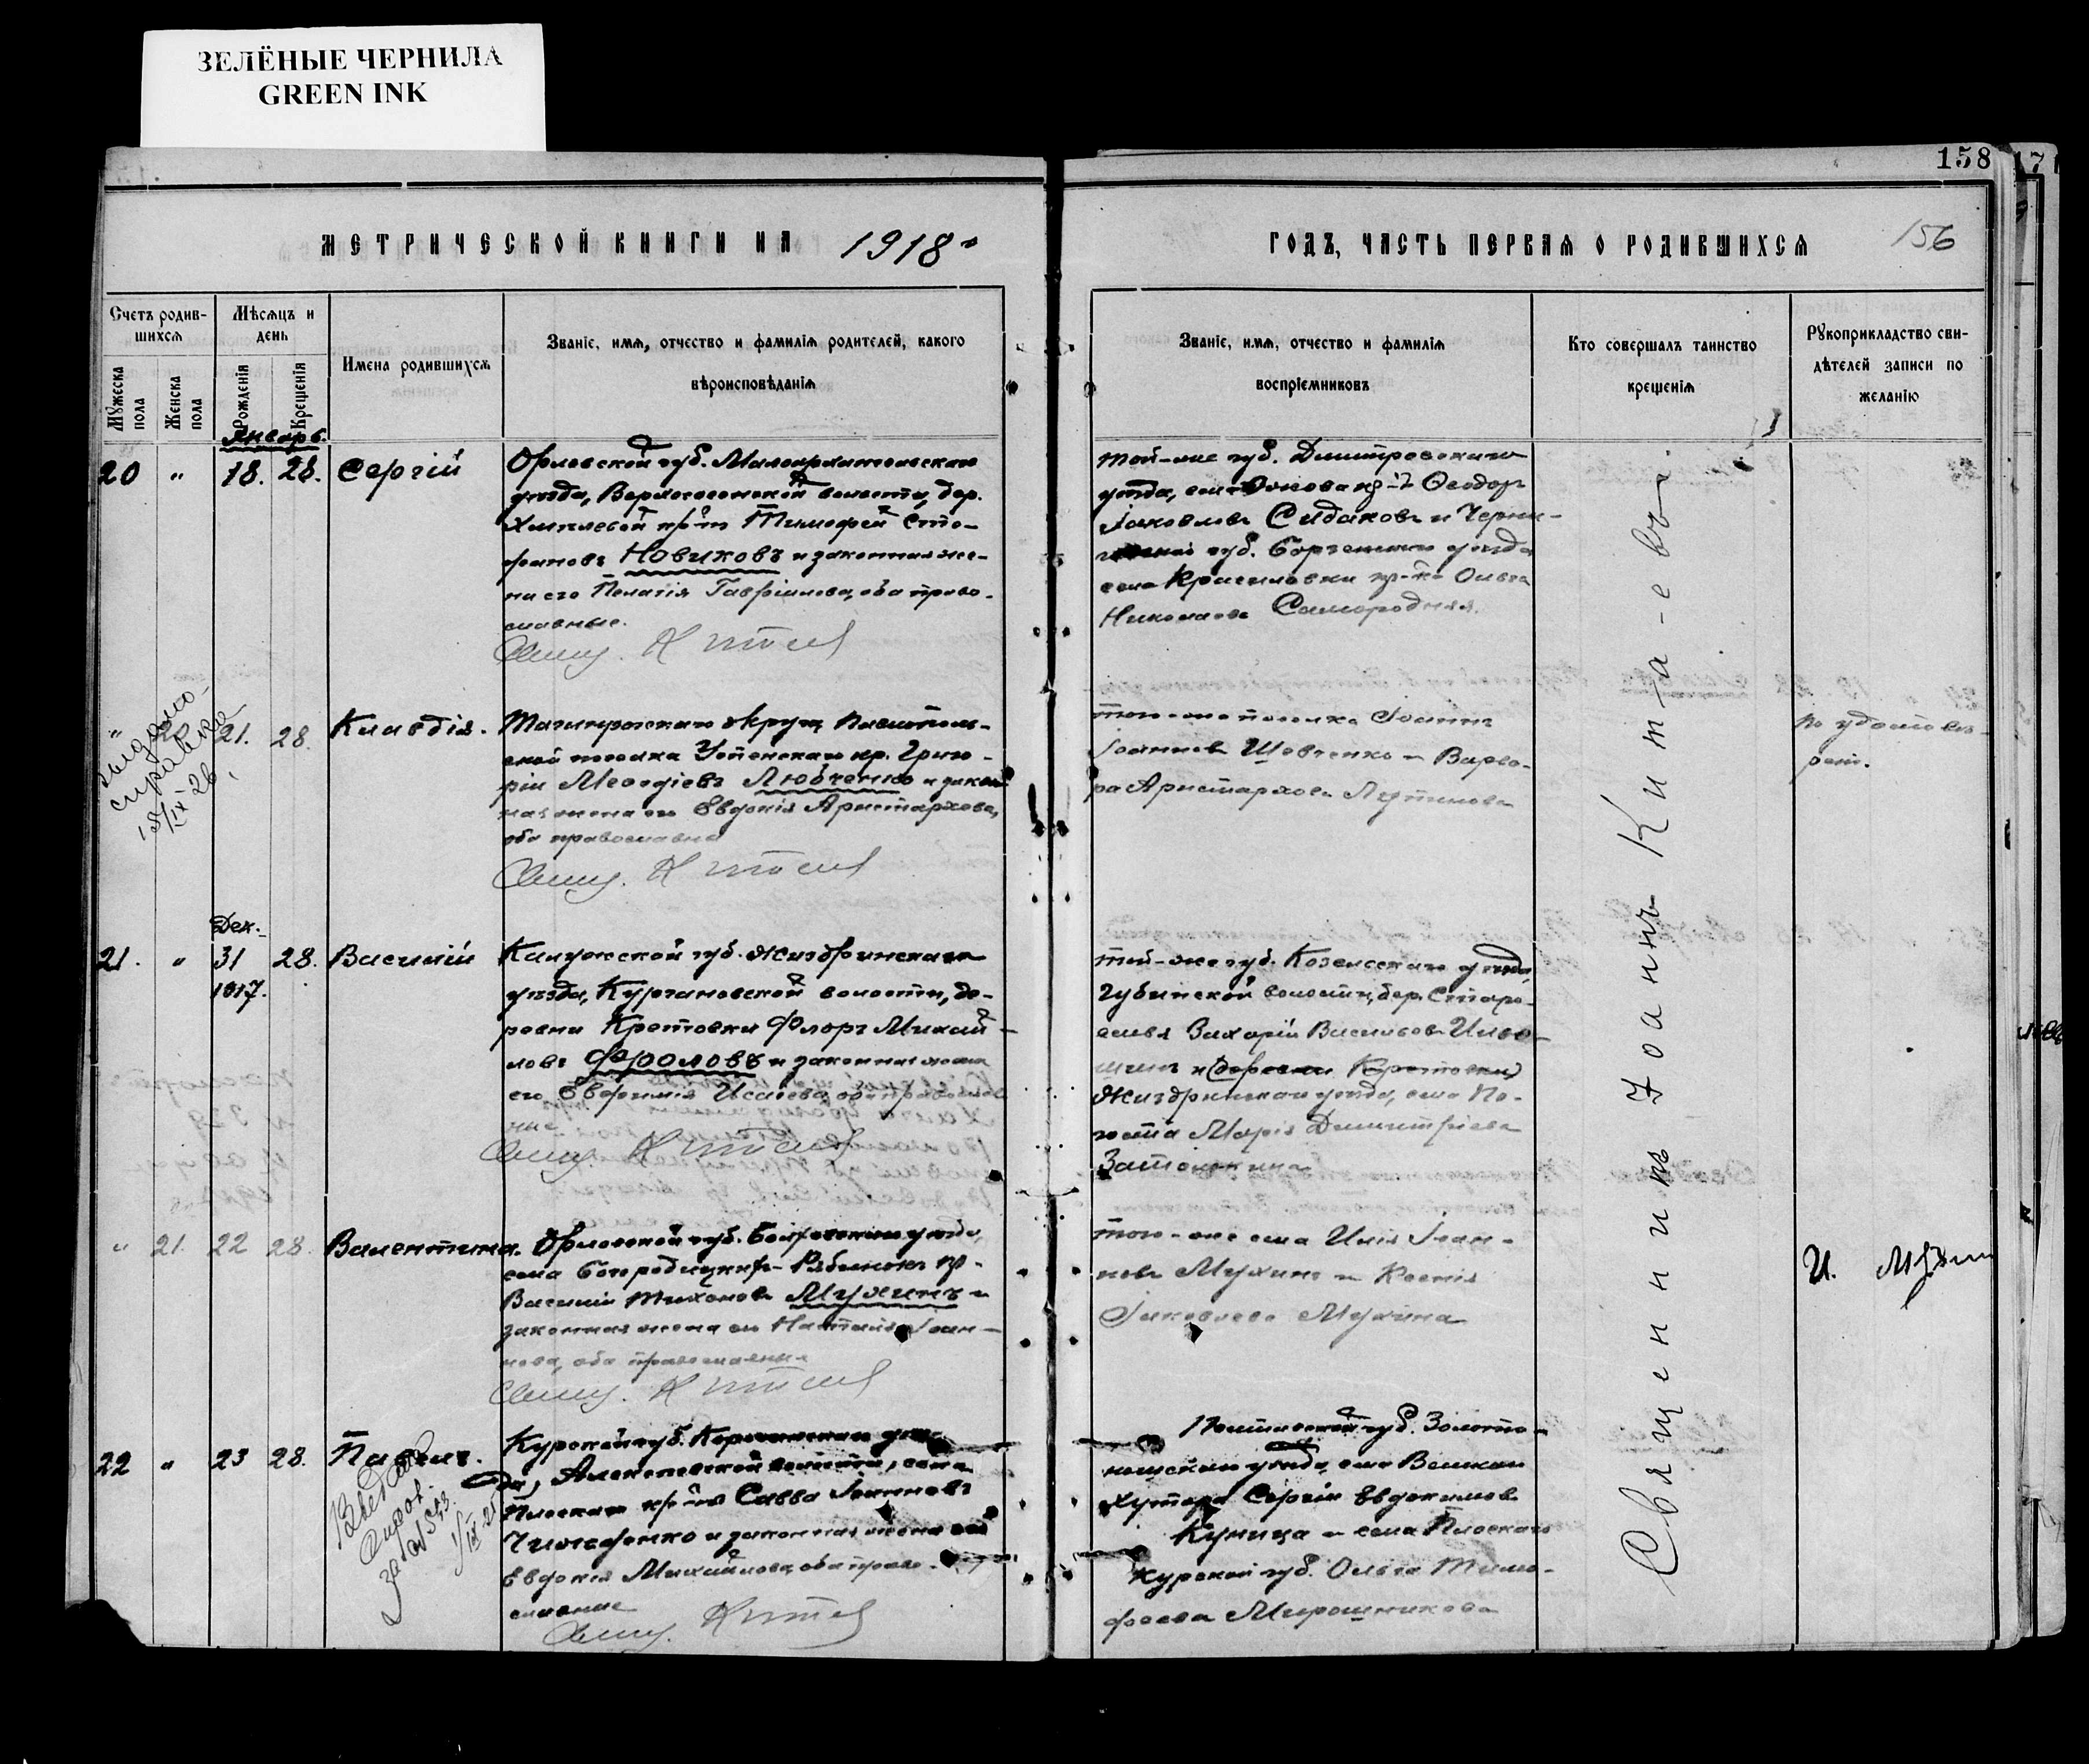 ЗЕЛЁНЫЕ ЧЕРНИЛА
GREEN INK
158
МЕТРИЧЕСКОЙ КНИГИ НА 1918
ГОДЪ, ЧАСТЬ ПЕРВАЯ О РОДИВШИХСЯ
156
Счетъ родив-
шихся
Мужеска
пола
Женска
пола
Мѣсяцъ и
день
Рожденія
Крещенія
Имена родившихся
Званіе, имя, отчество и фамилія родителей, какого
вѣроисповѣданія
Званіе, имя, отчество и фамилія
воспріемниковъ
Кто совершалъ таинство
крещенія
Рукоприкладство сви-
дѣтелей записи по
желанію
Январь.
20 " 18. 28. Сергій
Орловской губ. Малоархангельскаго
уѣзда, волости, дер.
Тимофей Сте-
фановъ Новиковъ и законная же-
на его Пелагія Гавріилова, оба право-
славные.
Свящ. Китаев
той-же губ. Дмитровскаго
уѣзда, села кр-нъ Ѳеодоръ
Іаковлевъ Сидаковъ и Черни-
говской губ. Борзенскаго уѣзда
села Красиловки кр-ка Ольга
Николаева Самородняя.
" 21. 28. Клавдія.
Таганрогскаго округа
поселка Успенскаго кр. Григо-
рій Меѳодіевъ Любченко и закон-
ная жена его Евдокія Аристархова,
оба православные
Свящ. Китаев
того-же поселка Іоаннъ
Іоанновъ Шевченко и Варва-
ра Аристархова
Дек.
21. " 31 28. Василій
1917.
Калужской губ. Жиздринскаго
уѣзда, Кургановской волости, де-
ревни Кретовки Флоръ Михай-
ловъ Фроловъ и законная жена
его Евфимія Исаіева, оба православ-
ные
Свящ. Китаев
той-же губ. Козельскаго уѣзда,
Губинской волости, дер. Старо-
селья Захарій Васильевъ
и (деревни Кретовки)
Жиздринскаго уѣзда, села По-
госта Марія Димитріева
" 21. 22 28. Валентина.
Орловской губ. Болховскаго уѣзда,
села
Василій Тихоновъ Мухинъ и
законная жена его Іоан-
нова, оба православные
Свящ. Китаев
того-же села Илія Іоан-
новъ Мухинъ и Ксенія
Іаковлева Мухина
И. Мухин
22 " 23 28. Павелъ.
Курской губ. уѣз-
да, Алексѣевской волости, села
Плоскаго кр-нъ Савва Іоанновъ
и законная жена его
Евдокія Михайлова, оба право-
славные
Свящ. Китаев
Полтавской губ. Золото-
ношскаго уѣзда, села Великаго
Хутора Сергій Евдокимовъ
Куница и села Плоскаго
Курской губ. Ольга Тимо-
феева Мирошникова
Священникъ Іоаннъ Китаевъ.